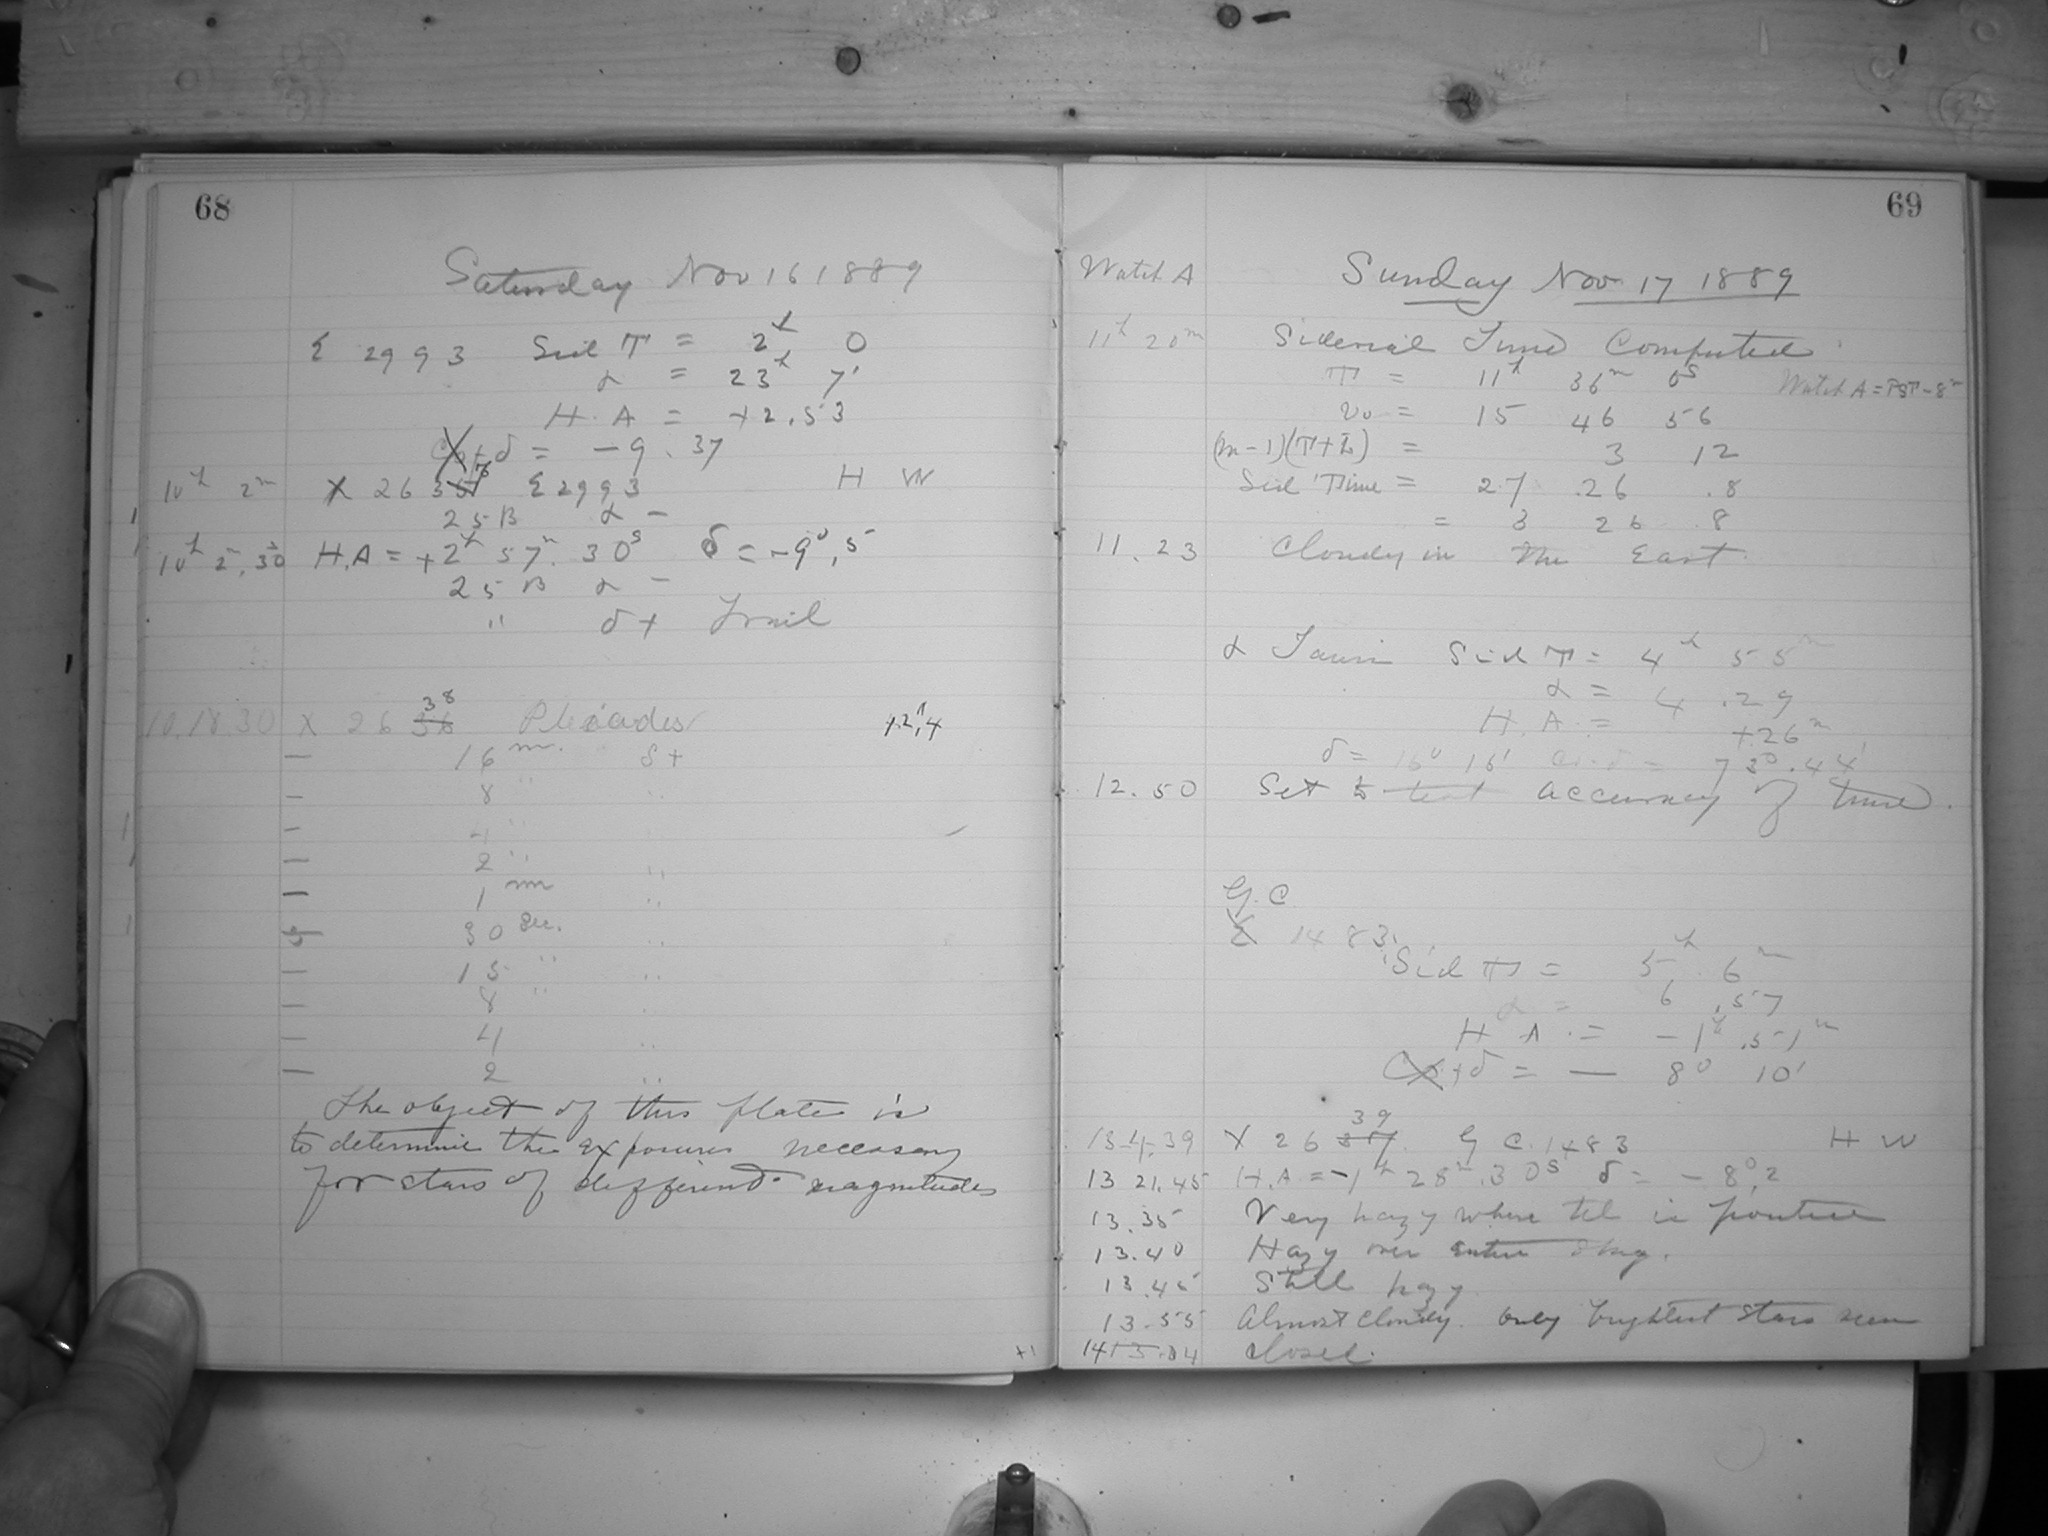 68
Saturday Nov 16 1889
Σ 2993 Sid T = 2h 0
α = 23h 7'
H.A = +2.53
Co+δ = -9.37
10h 2m X 26 37 Σ 2993 H W
25 B α -
10h 2m.30 H.A = +2h 57m.30s δ = -9°.5
25 B α -
" δ+ Trail
10.18.30 X 26 38 Pleiades +2h.4
— 16 m. δ+
— 8 " "
— 4 " "
— 2 " "
— 1 m "
— 30 sec. "
— 15 " "
— 8 " "
— 4 "
— 2 "
The object of this plate is
to determine the exposures necessary
for stars of different magnitudes
+1
69
Watch A Sunday Nov 17 1889
11h 20m Siderial Time Computed
T = 11h 36m 0s Watch A = PST - 8m
v0 = 15 46 56
(m-1)(T+L) = 3 12
Sid Time = 27 .26 .8
= 3 26 .8
11.23 Cloudy in the East.
α Tauri Sid T = 4h 55m
α = 4 .29
H.A. = +26m
δ = 16° 16' Co-δ = 73°.44'
12.50 Set to test accuracy of time.
G.C
Σ 1483
Sid T = 5h 6m
α = 6 .57
H A. = -1h.51m
Co+δ = — 8° 10'
13.4.39 X 26 39 G C. 1483 H W
13 21.45 H.A = -1h 28m.30s δ = -8°.2
13.35 Very hazy where tel is pointed
13.40 Hazy over entire sky.
13.45 Still hazy.
13.55 Almost cloudy. only brightest stars seen
14 13.04 closed.